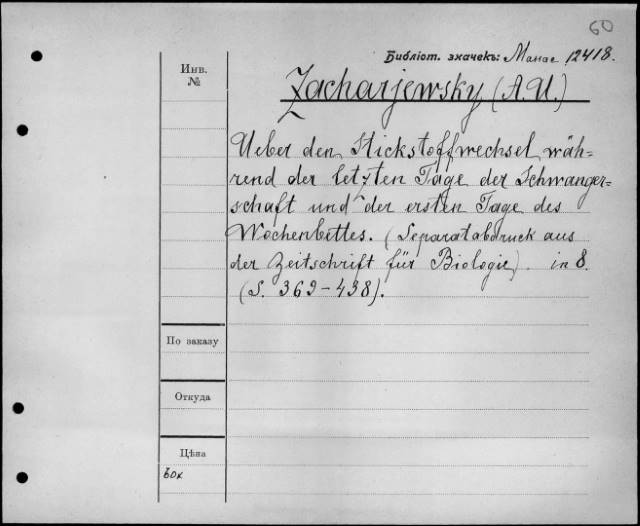 60
Библіот. значекъ: 12418.
Инв.
№
Zacharjewsky (A.U.)
Ueber den Stickstoffwechsel wäh=
rend der letzten Tage der Schwanger=
schaft und der ersten Tage des
Wochenbettes. (Separatabdruck aus
der Zeitschrift für Biologie). in 8.
(S. 369-438).
По заказу
Откуда
Цѣна